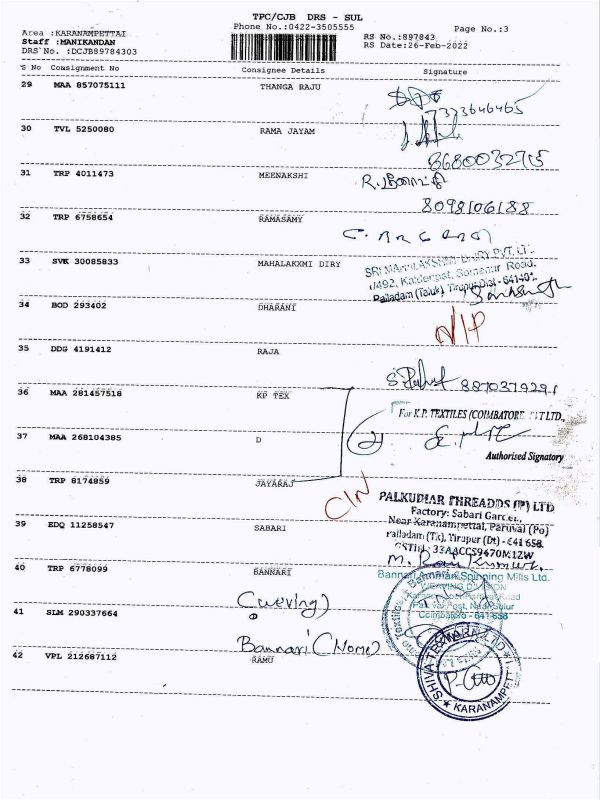 TPC/CJB DRS - SUL
Phone No.:0422-3505555
Page No.:3
Area :KARANAMPETTAI
Staff :MANIKANDAN
DRS No. :DCJB89784303
RS No.:897843
RS Date:26-Feb-2022
S No Consignment No Consignee Details Signature
29 MAA 857075111 THANGA RAJU
7373646465
30 TVL 5250080 RAMA JAYAM
8680032715
31 TRP 4011473 MEENAKSHI
8098106188
32 TRP 6758654 RAMASAMY
33 SVK 30085833 MAHALAKXMI DIRY
SRI MAHALAKSHMI DIARY PVT. LTD.
Palladam (Taluk), Tirupur Dist - 641401.
34 BOD 293402 DHARANI
N/P
35 DDG 4191412 RAJA
8870379291
36 MAA 281457518 KP TEX
For K.P. TEXTILES (COIMBATORE) PVT LTD.,
37 MAA 268104385 D
Authorised Signatory
38 TRP 8174859 JAYARAJ
C/N
PALKUDIAR THREADDS (P) LTD
Factory: Sabari Garden,
Near Karanampettai, Paruvai (Po)
Palladam (Tk), Tirupur (Dt) - 641 658.
GSTIN: 33AACCS9470M1ZW
39 EDQ 11258547 SABARI
40 TRP 6778099 BANNARI
Bannari Amman Spinning Mills Ltd.
WEAVING DIVISION
Coimbatore - 641 658
(weving)
41 SLM 290337664 D
Bannari (Home)
42 VPL 212687112 RAMU
KARANAMPETT